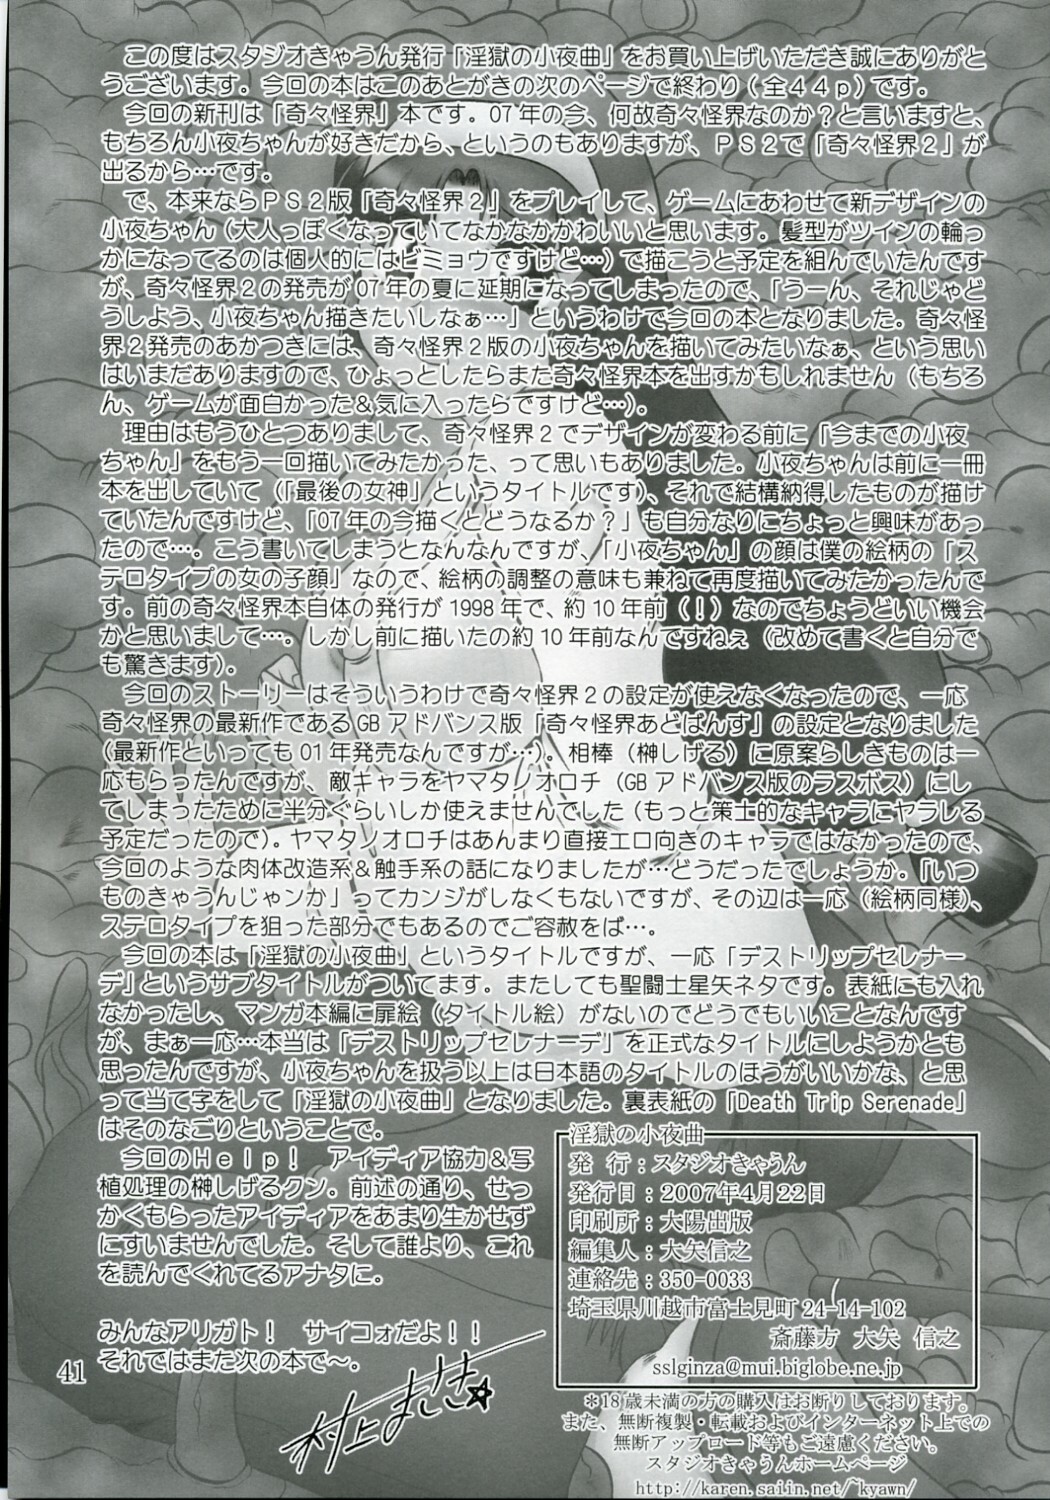 この度はスタジオきゃうん発行「淫獄の小夜曲」をお買い上げいただき誠にありがと
うございます。今回の本はこのあとがきの次のページで終わり(全44p)です。
今回の新刊は「奇々怪界」本です。07年の今、何故奇々怪界なのか?と言いますと、
もちろん小夜ちゃんが好きだから、というのもありますが、PS2で「奇々怪界2」が
出るから…です。
で、本来ならPS2版「奇々怪界2」をプレイして、ゲームにあわせて新デザインの
小夜ちゃん(大人っぽくなっていてなかなかかわいいと思います。髪型がツインの輪っ
かになってるのは個人的にはビミョウですけど…)で描こうと予定を組んでいたんです
が、奇々怪界2の発売が07年の夏に延期になってしまったので、「うーん、それじゃど
うしよう、小夜ちゃん描きたいしなぁ…」というわけで今回の本となりました。奇々怪
界2発売のあかつきには、奇々怪界2版の小夜ちゃんを描いてみたいなぁ、という思い
はいまだありますので、ひょっとしたらまた奇々怪界本を出すかもしれません(もちろ
ん、ゲームが面白かった&気に入ったらですけど…)。
理由はもうひとつありまして、奇々怪界2でデザインが変わる前に「今までの小夜
ちゃん」をもう一回描いてみたかった、って思いもありました。小夜ちゃんは前に一冊
本を出していて(「最後の女神」というタイトルです)、それで結構納得したものが描け
ていたんですけど、「07年の今描くとどうなるか?」も自分なりにちょっと興味があっ
たので…。こう書いてしまうとなんなんですが、「小夜ちゃん」の顔は僕の絵柄の「ス
テロタイプの女の子顔」なので、絵柄の調整の意味も兼ねて再度描いてみたかったんで
す。前の奇々怪界本自体の発行が1998年で、約10年前(!)なのでちょうどいい機会
かと思いまして…。しかし前に描いたの約10年前なんですねぇ(改めて書くと自分で
も驚きます)。
今回のストーリーはそういうわけで奇々怪界2の設定が使えなくなったので、一応
奇々怪界の最新作であるGBアドバンス版「奇々怪界あどばんす」の設定となりました
(最新作といっても01年発売なんですが…)。相棒(榊しげる)に原案らしきものは一
応もらったんですが、敵キャラをヤマタノオロチ(GBアドバンス版のラスボス)にし
てしまったために半分ぐらいしか使えませんでした(もっと策士的なキャラにヤラレる
予定だったので)。ヤマタノオロチはあんまり直接エロ向きのキャラではなかったので、
今回のような肉体改造系&触手系の話になりましたが…どうだったでしょうか。「いつ
ものきゃうんじゃンか」ってカンジがしなくもないですが、その辺は一応(絵柄同様)、
ステロタイプを狙った部分でもあるのでご容赦をば…。
今回の本は「淫獄の小夜曲」というタイトルですが、一応「デストリップセレナー
デ」というサブタイトルがついてます。またしても聖闘士星矢ネタです。表紙にも入れ
なかったし、マンガ本編に扉絵(タイトル絵)がないのでどうでもいいことなんです
が、まぁ一応…本当は「デストリップセレナーデ」を正式なタイトルにしようかとも
思ったんですが、小夜ちゃんを扱う以上は日本語のタイトルのほうがいいかな、と思
って当て字をして「淫獄の小夜曲」となりました。裏表紙の「Death Trip Serenade」
はそのなごりということで。
今回のHelp! アイディア協力&写
植処理の榊しげるクン。前述の通り、せっ
かくもらったアイディアをあまり生かせず
にすいませんでした。そして誰より、これ
を読んでくれてるアナタに。
みんなアリガト! サイコォだよ!!
それではまた次の本で〜。
村上まさき☆
41
淫獄の小夜曲
発 行:スタジオきゃうん
発行日:2007年4月22日
印刷所:大陽出版
編集人:大矢信之
連絡先:350-0033
埼玉県川越市富士見町24-14-102
斎藤方 大矢 信之
sslginza@mui.biglobe.ne.jp
*18歳未満の方の購入はお断りしております。
また、無断複製・転載およびインターネット上での
無断アップロード等もご遠慮ください。
スタジオきゃうんホームページ
http://karen.saiin.net/~kyawn/